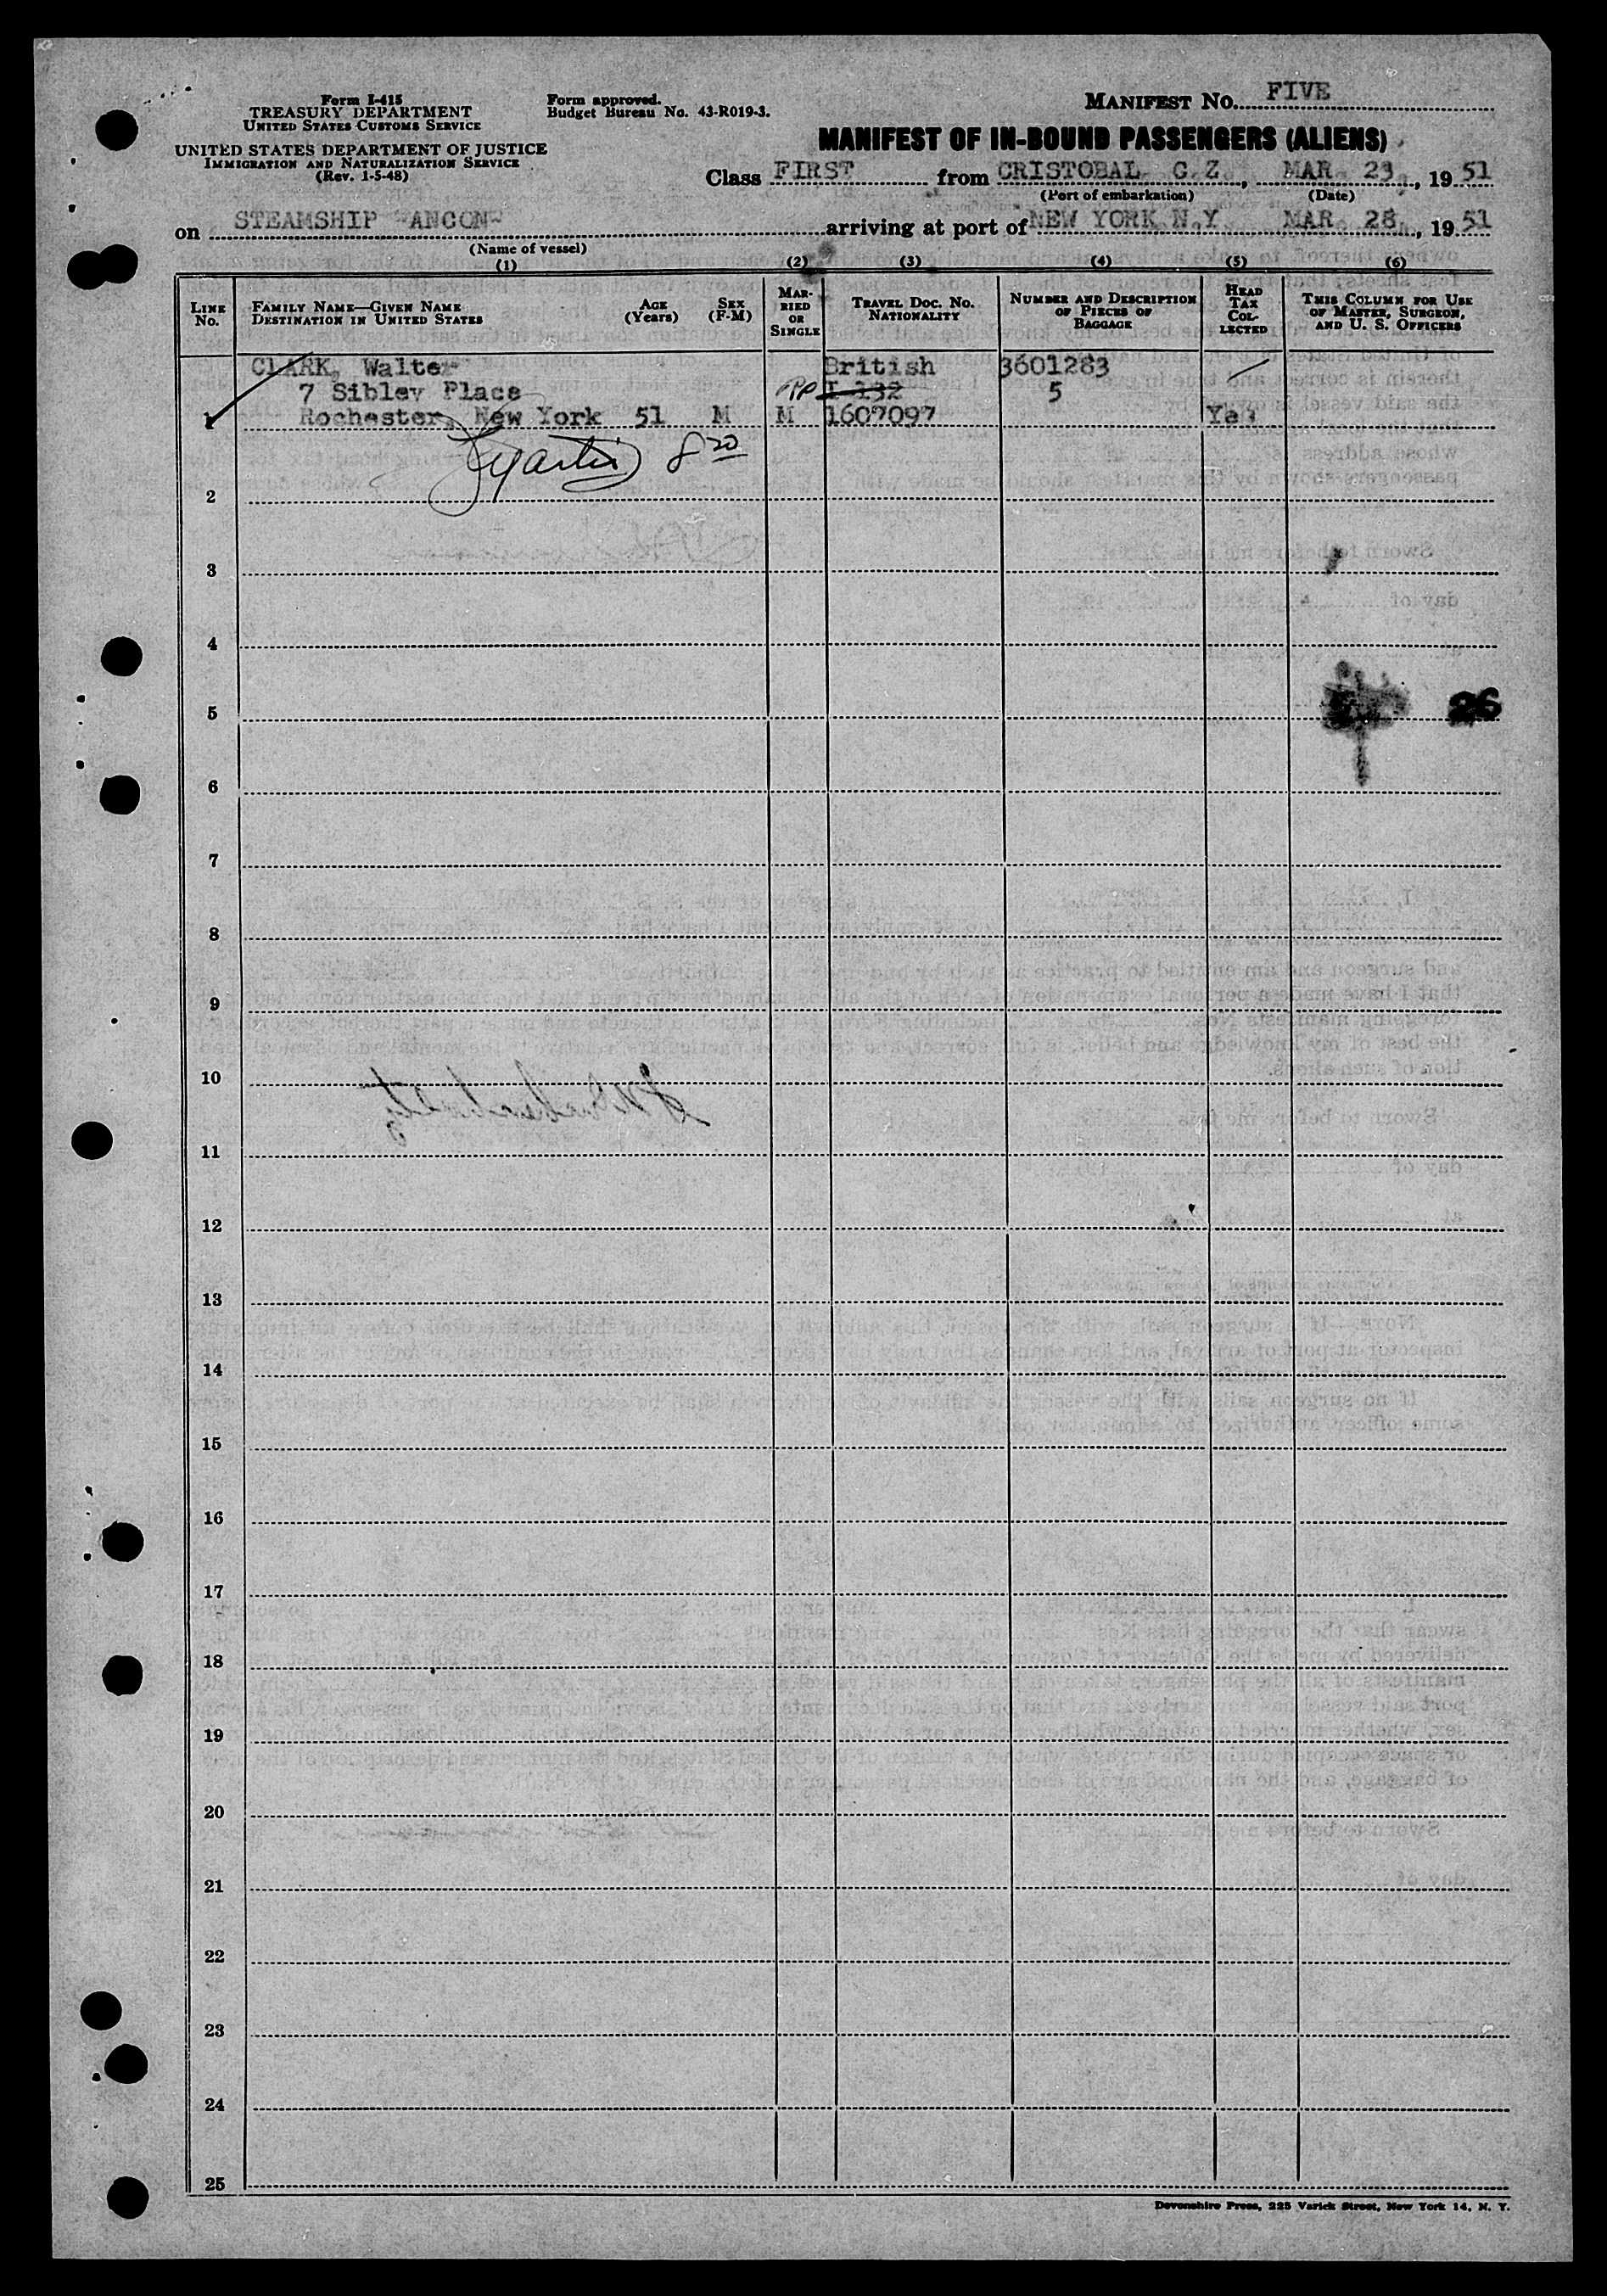 Form I-415
TREASURY DEPARTMENT
UNITED STATES CUSTOMS SERVICE
UNITED STATES DEPARTMENT OF JUSTICE
IMMIGRATION AND NATURALIZATION SERVICE
(Rev. 1-5-48)
Form approved.
Budget Bureau No. 43-R019-3.
MANIFEST NO. FIVE
MANIFEST OF IN-BOUND PASSENGERS (ALIENS)
Class FIRST from CRISTOBAL C.Z., MAR 23, 19 51
(Port of embarkation) (Date)
on STEAMSHIP "ANCON" arriving at port of NEW YORK N.Y. MAR 28, 19 51
(Name of vessel)
(1) (2) (3) (4) (5) (6)
LINE No. FAMILY NAME—GIVEN NAME DESTINATION IN UNITED STATES AGE (Years) SEX (F-M) MARRIED OR SINGLE TRAVEL DOC. NO. NATIONALITY NUMBER AND DESCRIPTION OF PIECES OF BAGGAGE HEAD TAX COLLECTED THIS COLUMN FOR USE OF MASTER, SURGEON, AND U. S. OFFICERS
CLARK, Walter British 3601283
7 Sibley Place I 132 5
1 Rochester, New York 51 M M 1607097 Yes
8 20
2
3
4
5 26
6
7
8
9
10
11
12
13
14
15
16
17
18
19
20
21
22
23
24
25
Devonshire Press, 225 Varick Street, New York 14, N. Y.